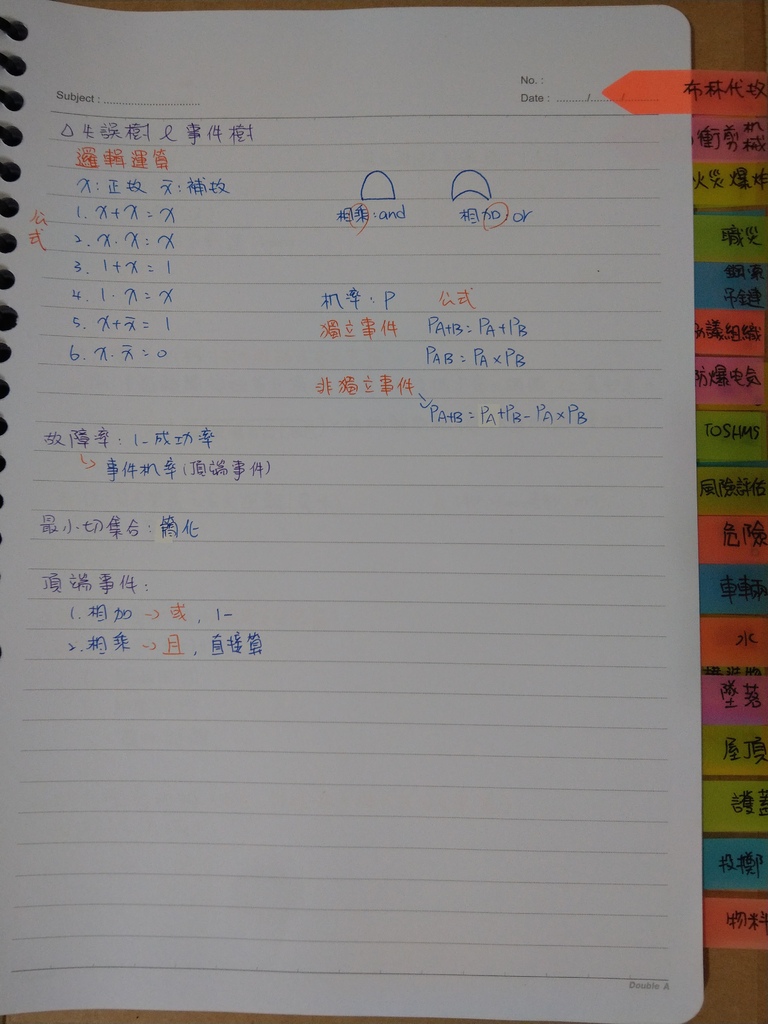 No. :
Subject : ........................
Date : ........./........./.........
△失誤樹 & 事件樹
邏輯運算
x:正故 x̄:補故
公式
1. x+x = x
2. x·x = x
3. 1+x = 1
4. 1·x = x
5. x+x̄ = 1
6. x·x̄ = 0
相乘:and 相加:or
机率:P 公式
獨立事件 PA+B = PA+PB
PAB = PA×PB
非獨立事件
PA+B = PA+PB-PA×PB
故障率:1-成功率
↳事件机率(頂端事件)
最小切集合:簡化
頂端事件:
1.相加→或,1-
2.相乘→且,直接算
Double A
布林代故
衝剪机械
火災爆炸
職災
鋼索吊鏈
議組織
防爆电気
TOSHMS
風險評估
危險
車輛
水
墜落
屋頂
護蓋
投擲
物料